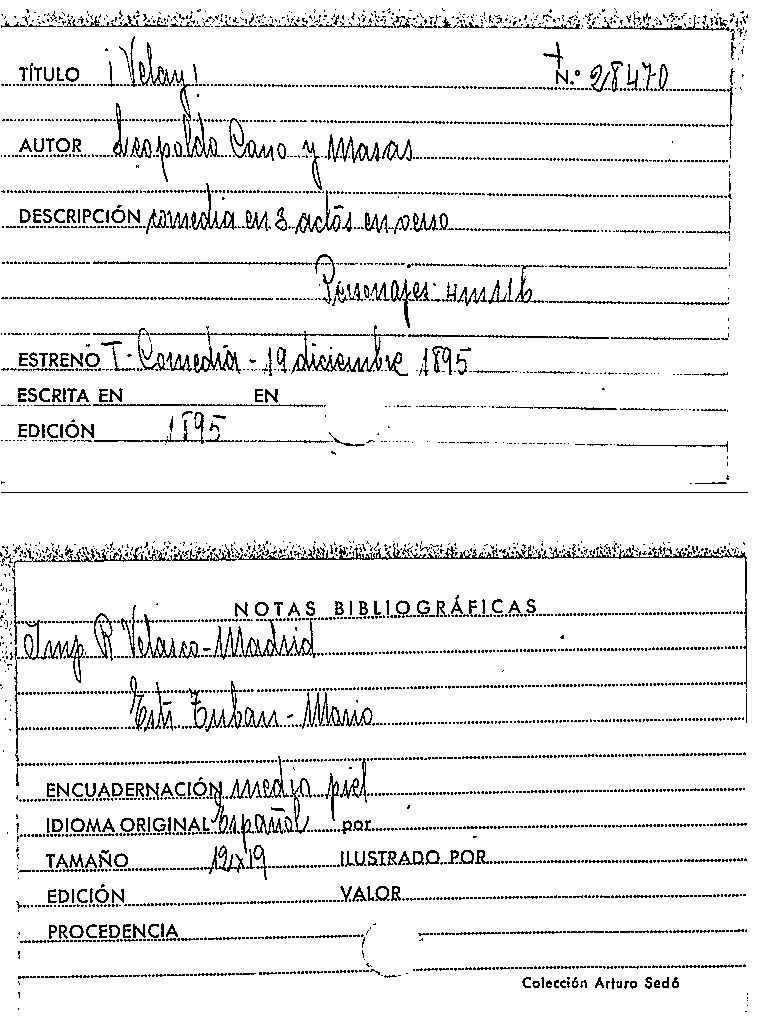 TÍTULO ¡Velay! N.º 28470
AUTOR Leopoldo Cano y Masas
DESCRIPCIÓN comedia en 3 actos en verso
Personajes: 4m116
ESTRENO T. Comedia - 19 diciembre 1895
ESCRITA EN EN
EDICIÓN 1895
NOTAS BIBLIOGRÁFICAS
Imp R Velasco - Madrid
Estr - Mario
ENCUADERNACIÓN medio piel
IDIOMA ORIGINAL Español por
TAMAÑO 12x19 ILUSTRADO POR
EDICIÓN VALOR
PROCEDENCIA
Colección Arturo Sedó